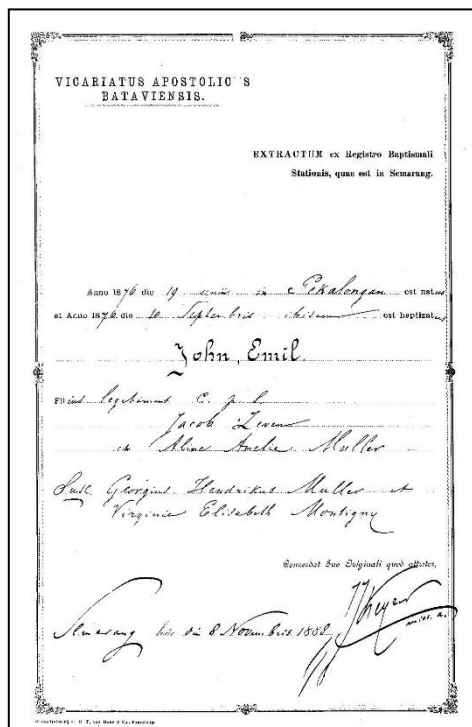 VICARIATUS APOSTOLICUS
BATAVIENSIS.
EXTRACTUM ex Registro Baptismali
Stationis, quae est in Semarang.
Anno 1876 die 19 in Pekalongan est natus
et Anno 1876 die 10 Septembris est baptizatus
John, Emil.
Filius legitimus C. p. l.
Jacob
ex Aline Amelie Muller
Susc. Georgius Hendrikus Muller et
Virginie Elisabeth Montigny
Concordat Suo Originali quod attestor,
miss. a.
Semarang die 8 Novembris 1882